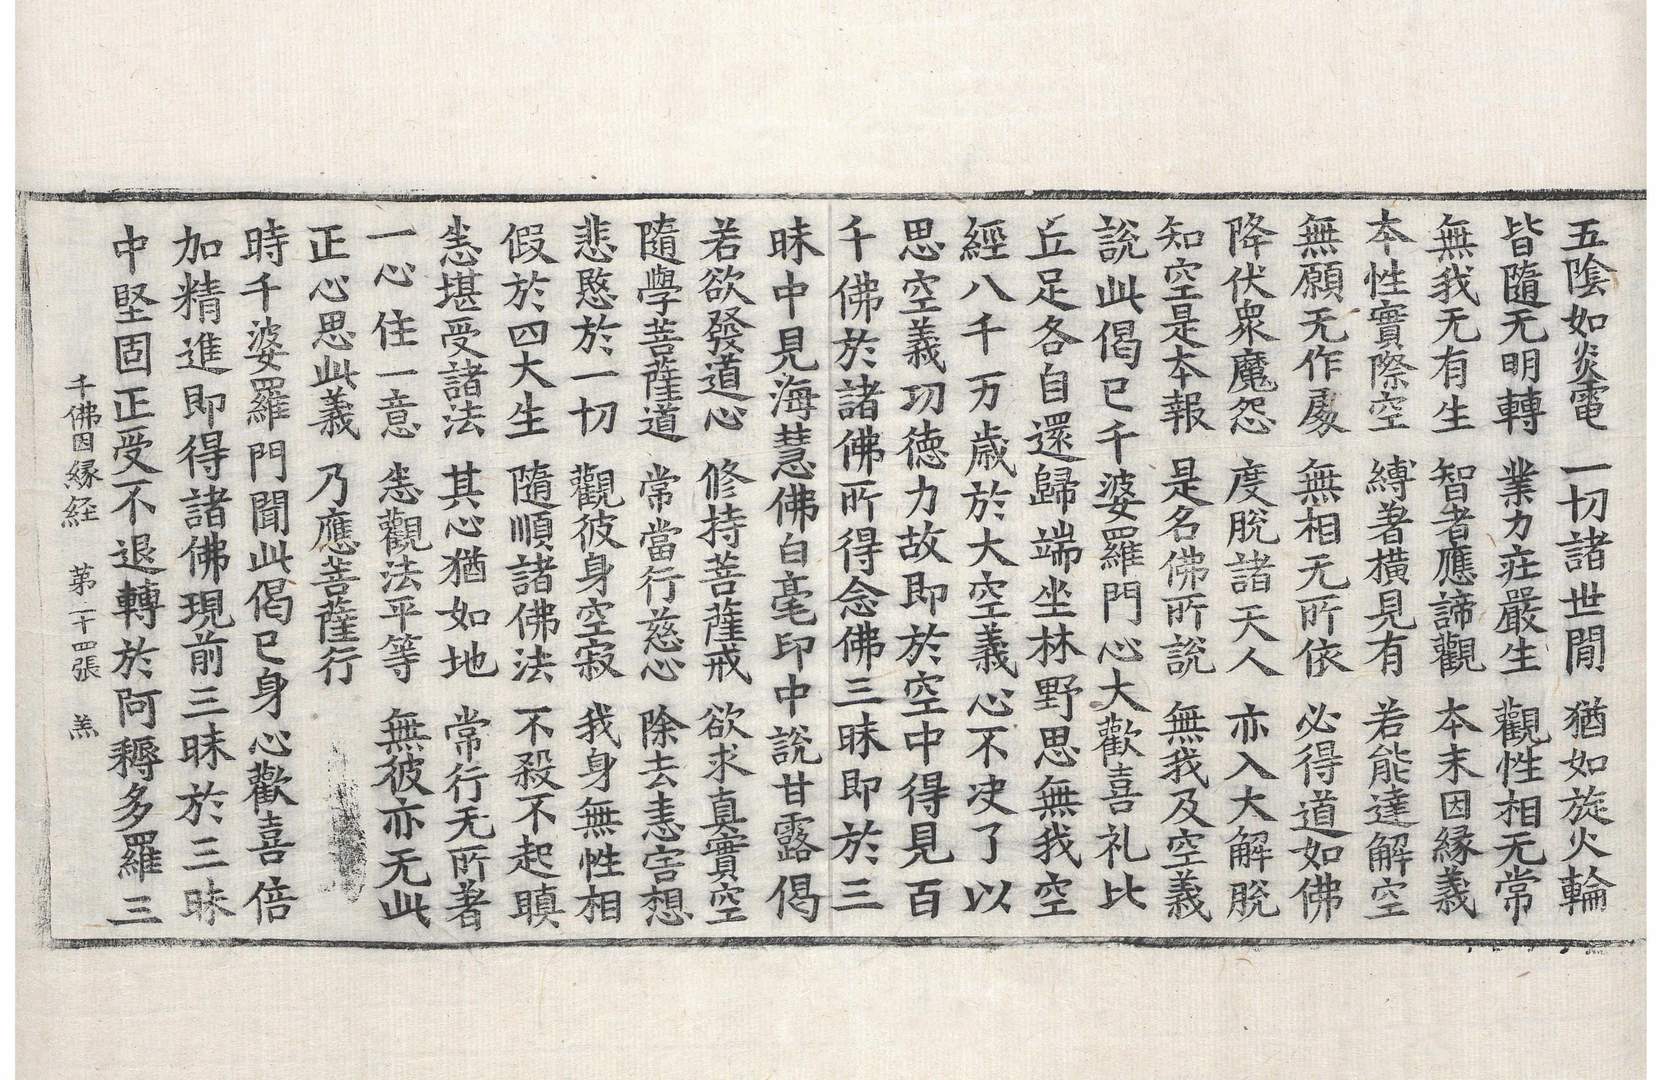 五陰如炎電　一切諸世間　猶如旋火輪
皆隨无明轉　業力莊嚴生　觀性相无常
無我无有生　智者應諦觀　本末因縁義
本性實際空　縛著橫見有　若能達解空
無願无作處　無相无所依　必得道如佛
降伏衆魔怨　度脫諸天人　亦入大解脫
知空是本報　是名佛所說　無我及空義
說此偈已千婆羅門心大歡喜礼比
丘足各自還歸端坐林野思無我空
經八千万歲於大空義心不决了以
思空義功德力故即於空中得見百
千佛於諸佛所得念佛三昧即於三
昧中見海慧佛白毫印中說甘露偈
若欲發道心　修持菩薩戒　欲求真實空
隨學菩薩道　常當行慈心　除去恚害想
悲愍於一切　觀彼身空寂　我身無性相
假於四大生　隨順諸佛法　不殺不起瞋
悉堪受諸法　其心猶如地　常行无所著
一心住一意　悉觀法平等　無彼亦无此
正心思此義　乃應菩薩行
時千婆羅門聞此偈已身心歡喜倍
加精進即得諸佛現前三昧於三昧
中堅固正受不退轉於阿耨多羅三
千佛因緣経　第二十四張　羔